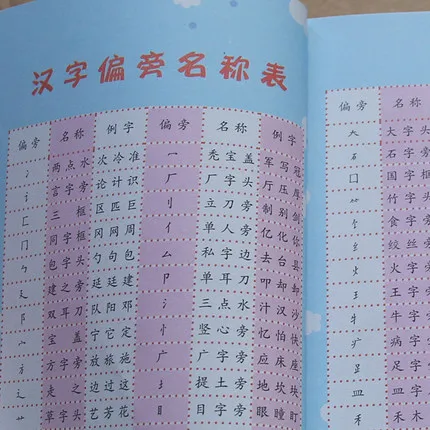 汉字偏旁名称表
偏旁 名称 例字 偏旁 名称 例字
冫 两点水 次冷准 冖 秃宝盖 军写冠
讠 言字旁 论计识 厂 厂字头 厅压厚
匚 三框 区匹巨 刂 立刀旁 制别剑
冂 同字框 冈网周 亻 单人旁 亿化你
勹 包字头 勺句包 厶 私字边 去台县
廴 建之旁 廷延建 卩 单耳刀 叩却卸
阝 双耳刀 队阳邓 氵 三点水 汁汉沙
宀 宝盖 宁它定 忄 竖心旁 忆怕快
方 方字旁 放旅施 广 广字旁 应床座
辶 走之 边过这 扌 提土旁 地坎坡
艹 草字头 艺芳花 目 目字旁 眼瞳盯
偏旁 名称
大 大字头
石 石字旁
囗 国字框
⺮ 竹字头
饣 食字旁
纟 绞丝旁
火 火字旁
王 王字旁
牛 牛字旁
疒 病字旁
足 足字旁
皿 皿字底
禾 禾木旁